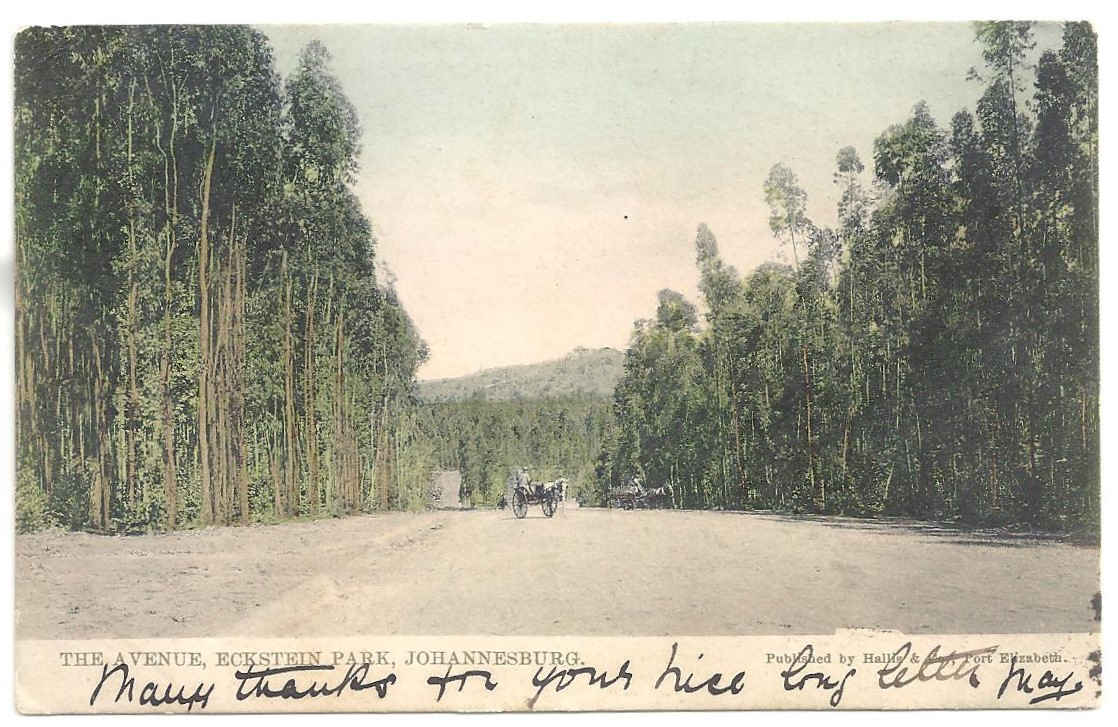 THE AVENUE, ECKSTEIN PARK, JOHANNESBURG.
Published by Hallis & Co., Port Elizabeth.
Many thanks for your nice long letter May.